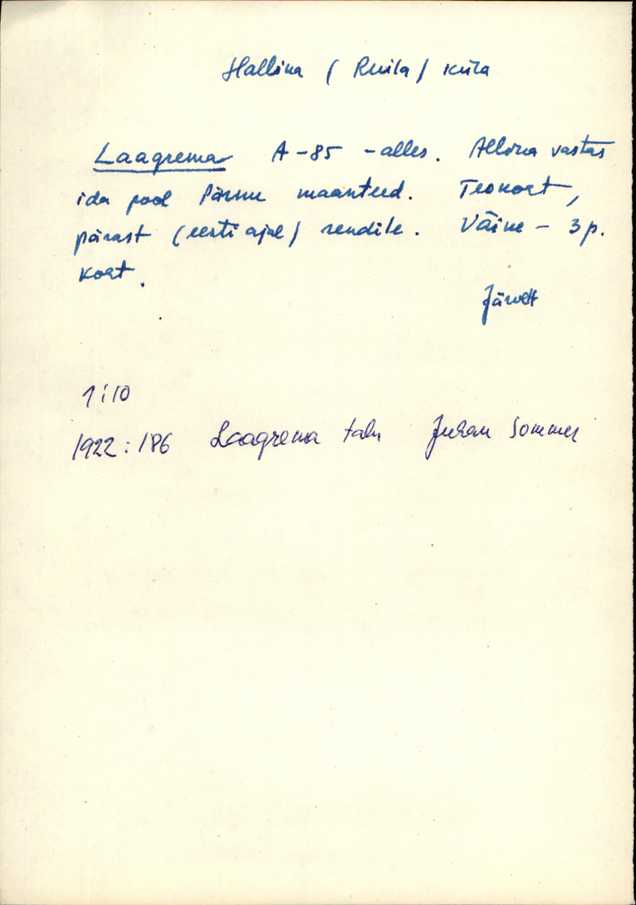 Hallina (Ruila) küla
Laagrema A-85 - alles. Allina vastas
ida pool Pärnu maanteed. Teokoht,
pärast (eesti ajal) rendile. Väine - 3 p.
koht.
Järvelt
1:10
1922:186 Laagrema talu Juhan Sommer